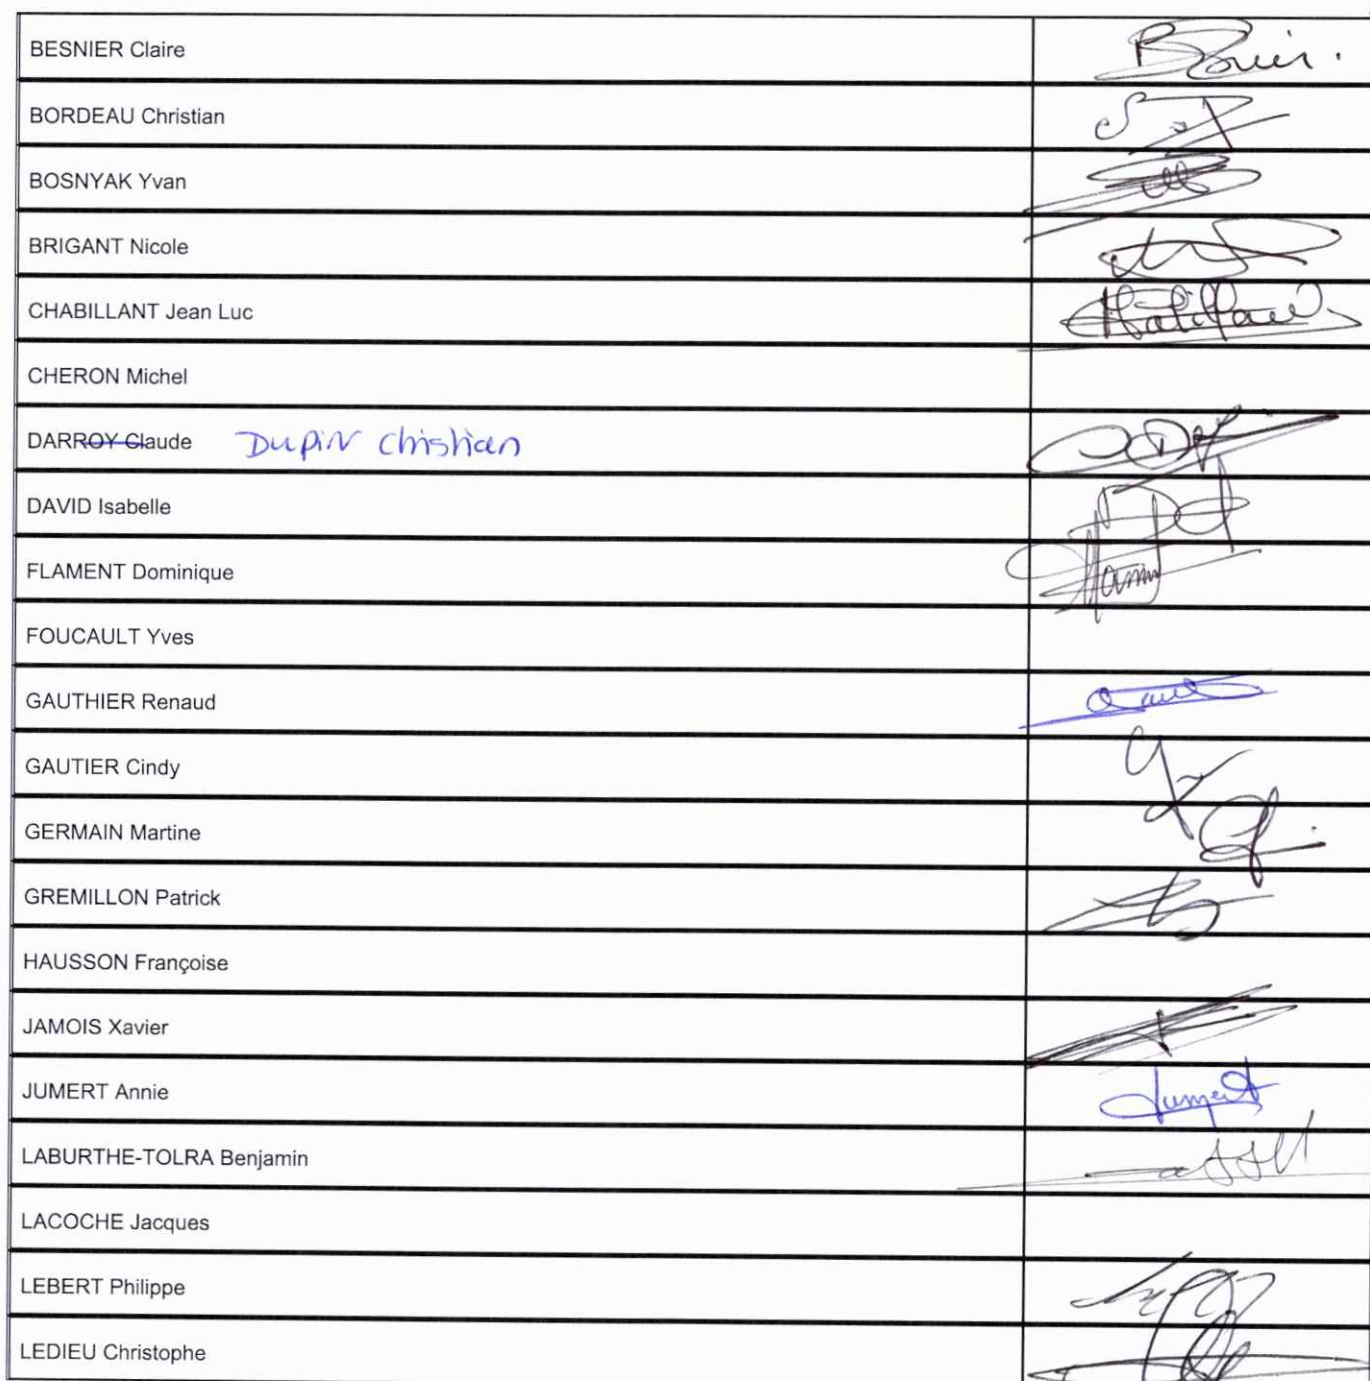 BESNIER Claire
BORDEAU Christian
BOSNYAK Yvan
BRIGANT Nicole
CHABILLANT Jean Luc
CHERON Michel
DARROY Claude DUPIN Christian
DAVID Isabelle
FLAMENT Dominique
FOUCAULT Yves
GAUTHIER Renaud
GAUTIER Cindy
GERMAIN Martine
GREMILLON Patrick
HAUSSON Françoise
JAMOIS Xavier
JUMERT Annie Jumert
LABURTHE-TOLRA Benjamin
LACOCHE Jacques
LEBERT Philippe
LEDIEU Christophe